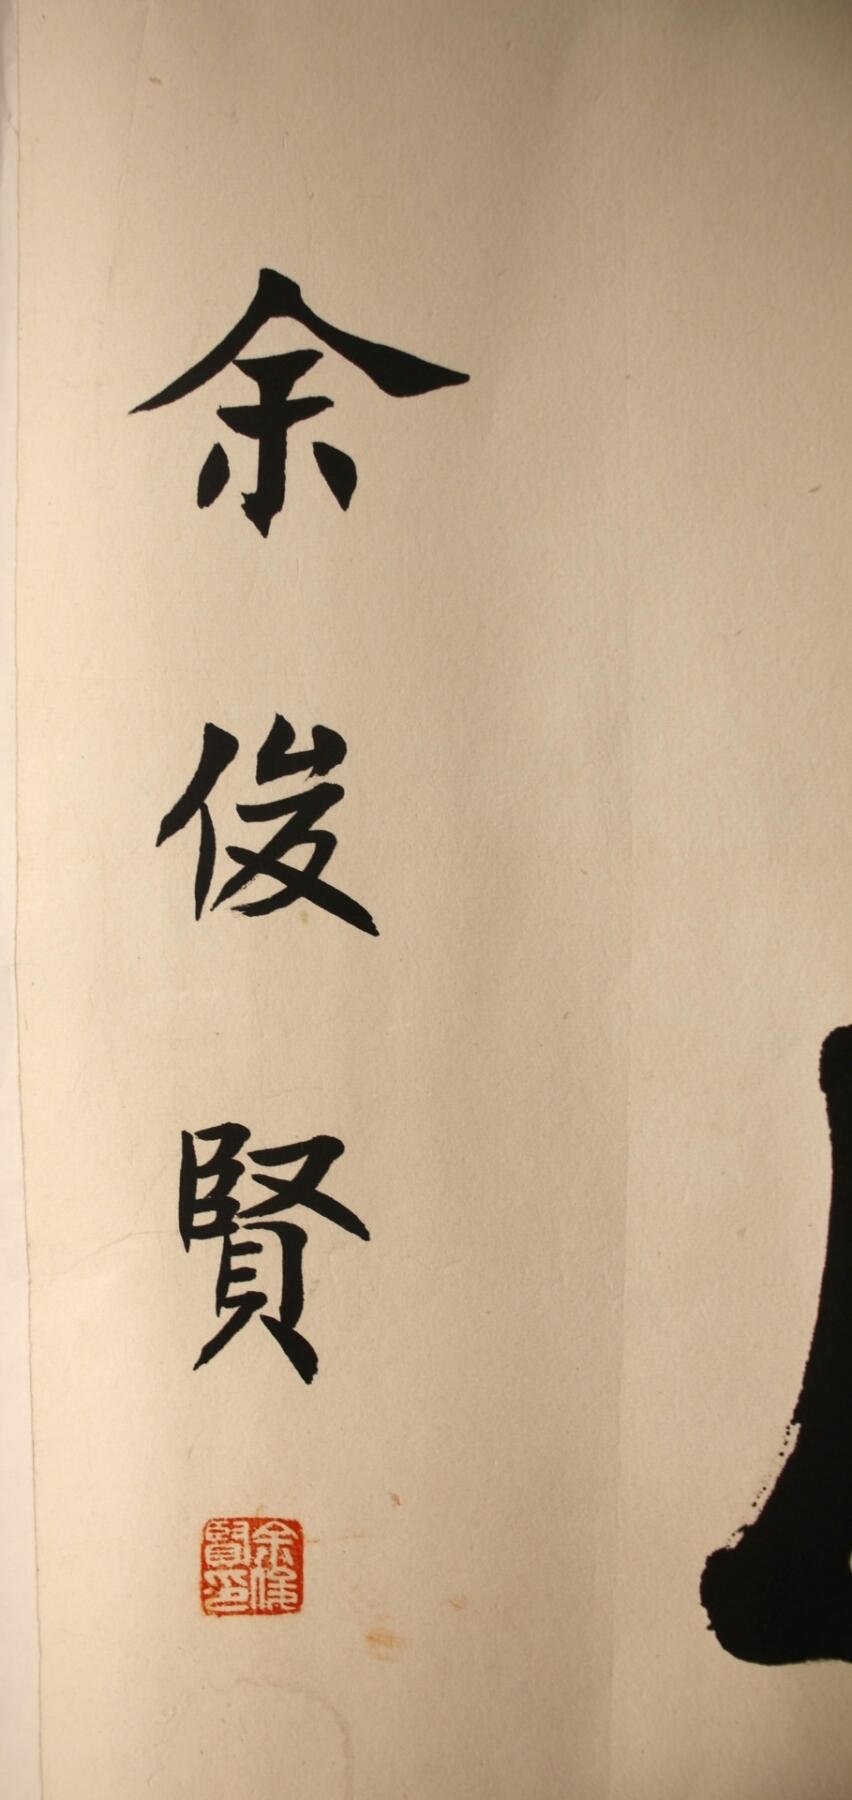 余俊賢
余俊賢印